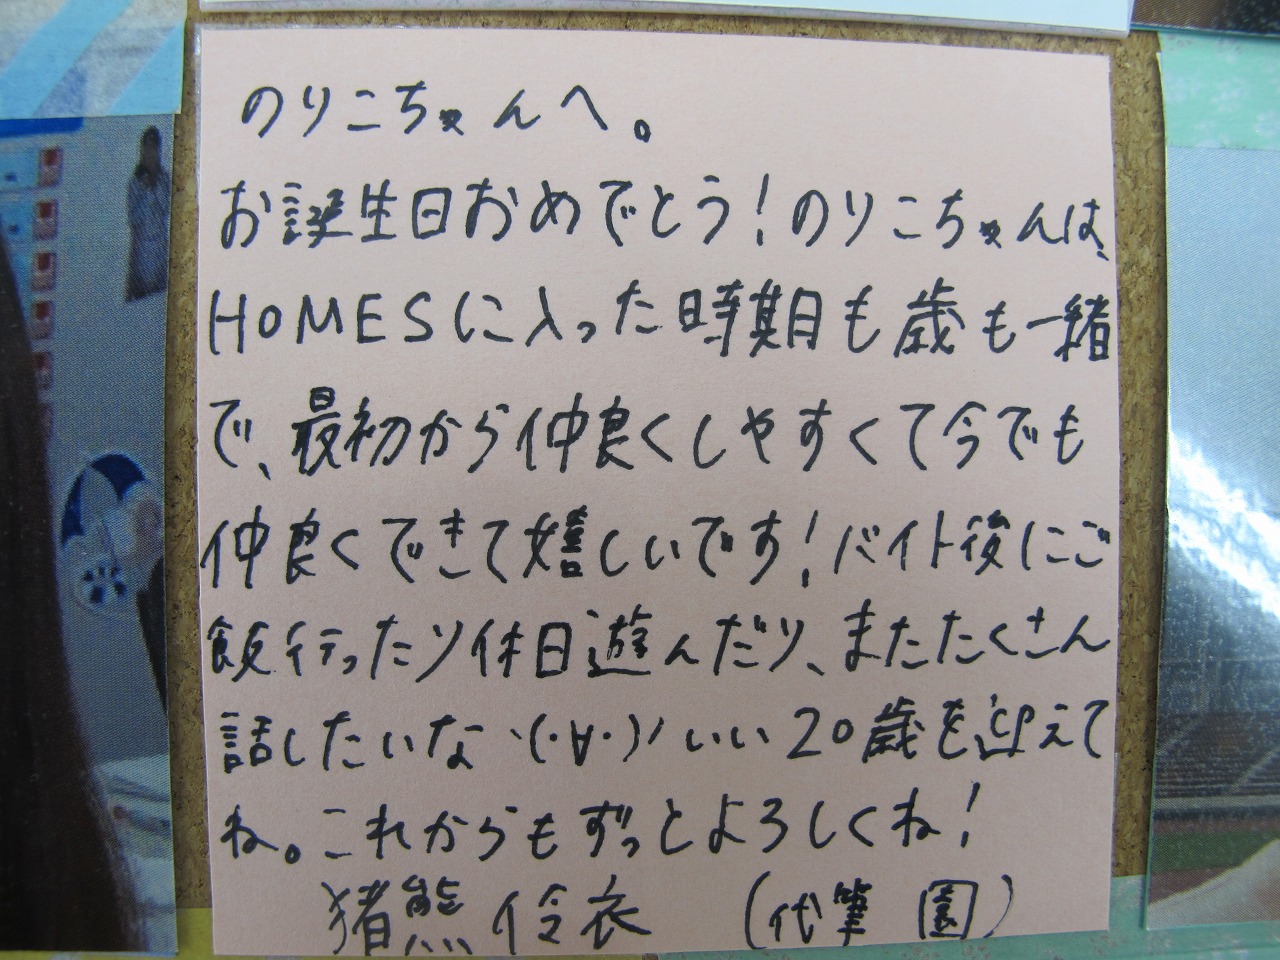 のりこちゃんへ。
お誕生日おめでとう!のりこちゃんは、
HOMESに入った時期も歳も一緒
で、最初から仲良くしやすくて今でも
仲良くできて嬉しいです!バイト後にご
飯行ったり休日遊んだり、またたくさん
話したいな ヽ(・∀・)ノ いい20歳を迎えて
ね。これからもずっとよろしくね!
猪熊 伶衣 (代筆 園)